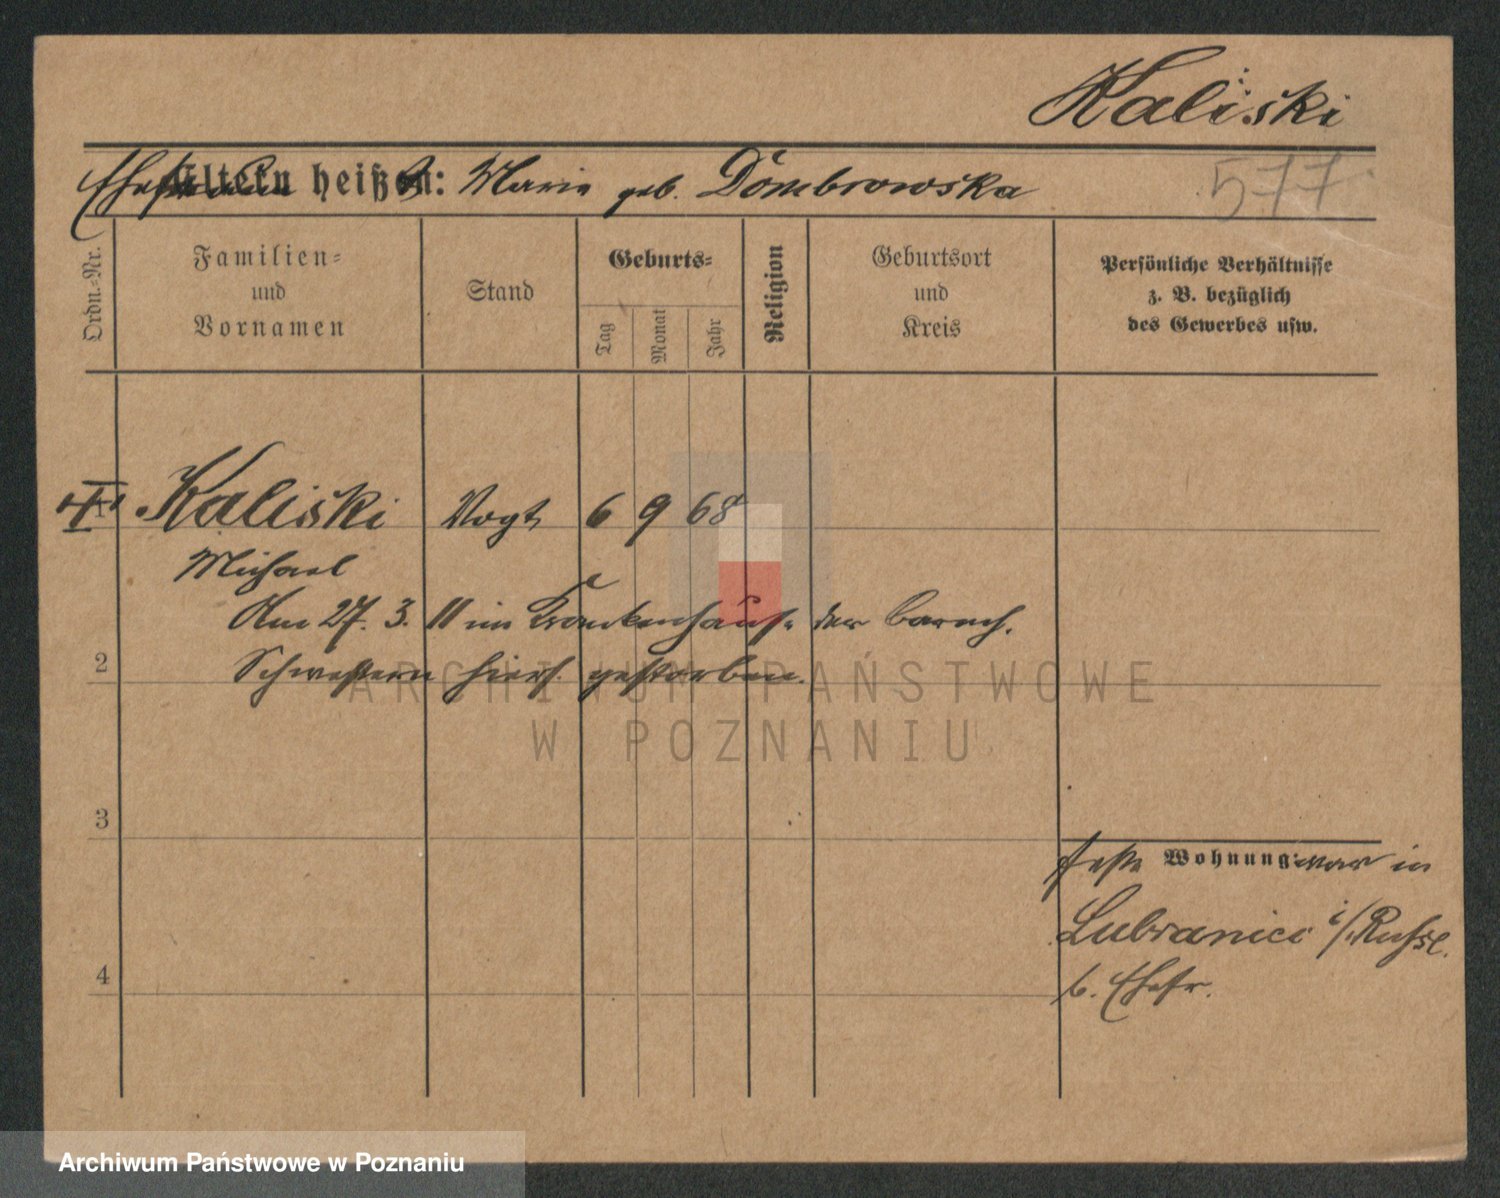 Kaliski
Ehefrau Eltern heißen: Marie geb. Dombrowska
577
Ordn.-Nr.
Familien-
und
Vornamen
Stand
Geburts-
Tag
Monat
Jahr
Religion
Geburtsort
und
Kreis
Persönliche Verhältnisse
z. B. bezüglich
des Gewerbes usw.
1 Kaliski Vogt 6 9 68
Michael
Am 27. 3. 11 im Krankenhause der barmh.
2 Schwestern hiers. gestorben.
ARCHIWUM PAŃSTWOWE
W POZNANIU
3
feste Wohnung: war in
Lubranici i/Russl.
4
b. Ehefr.
Archiwum Państwowe w Poznaniu